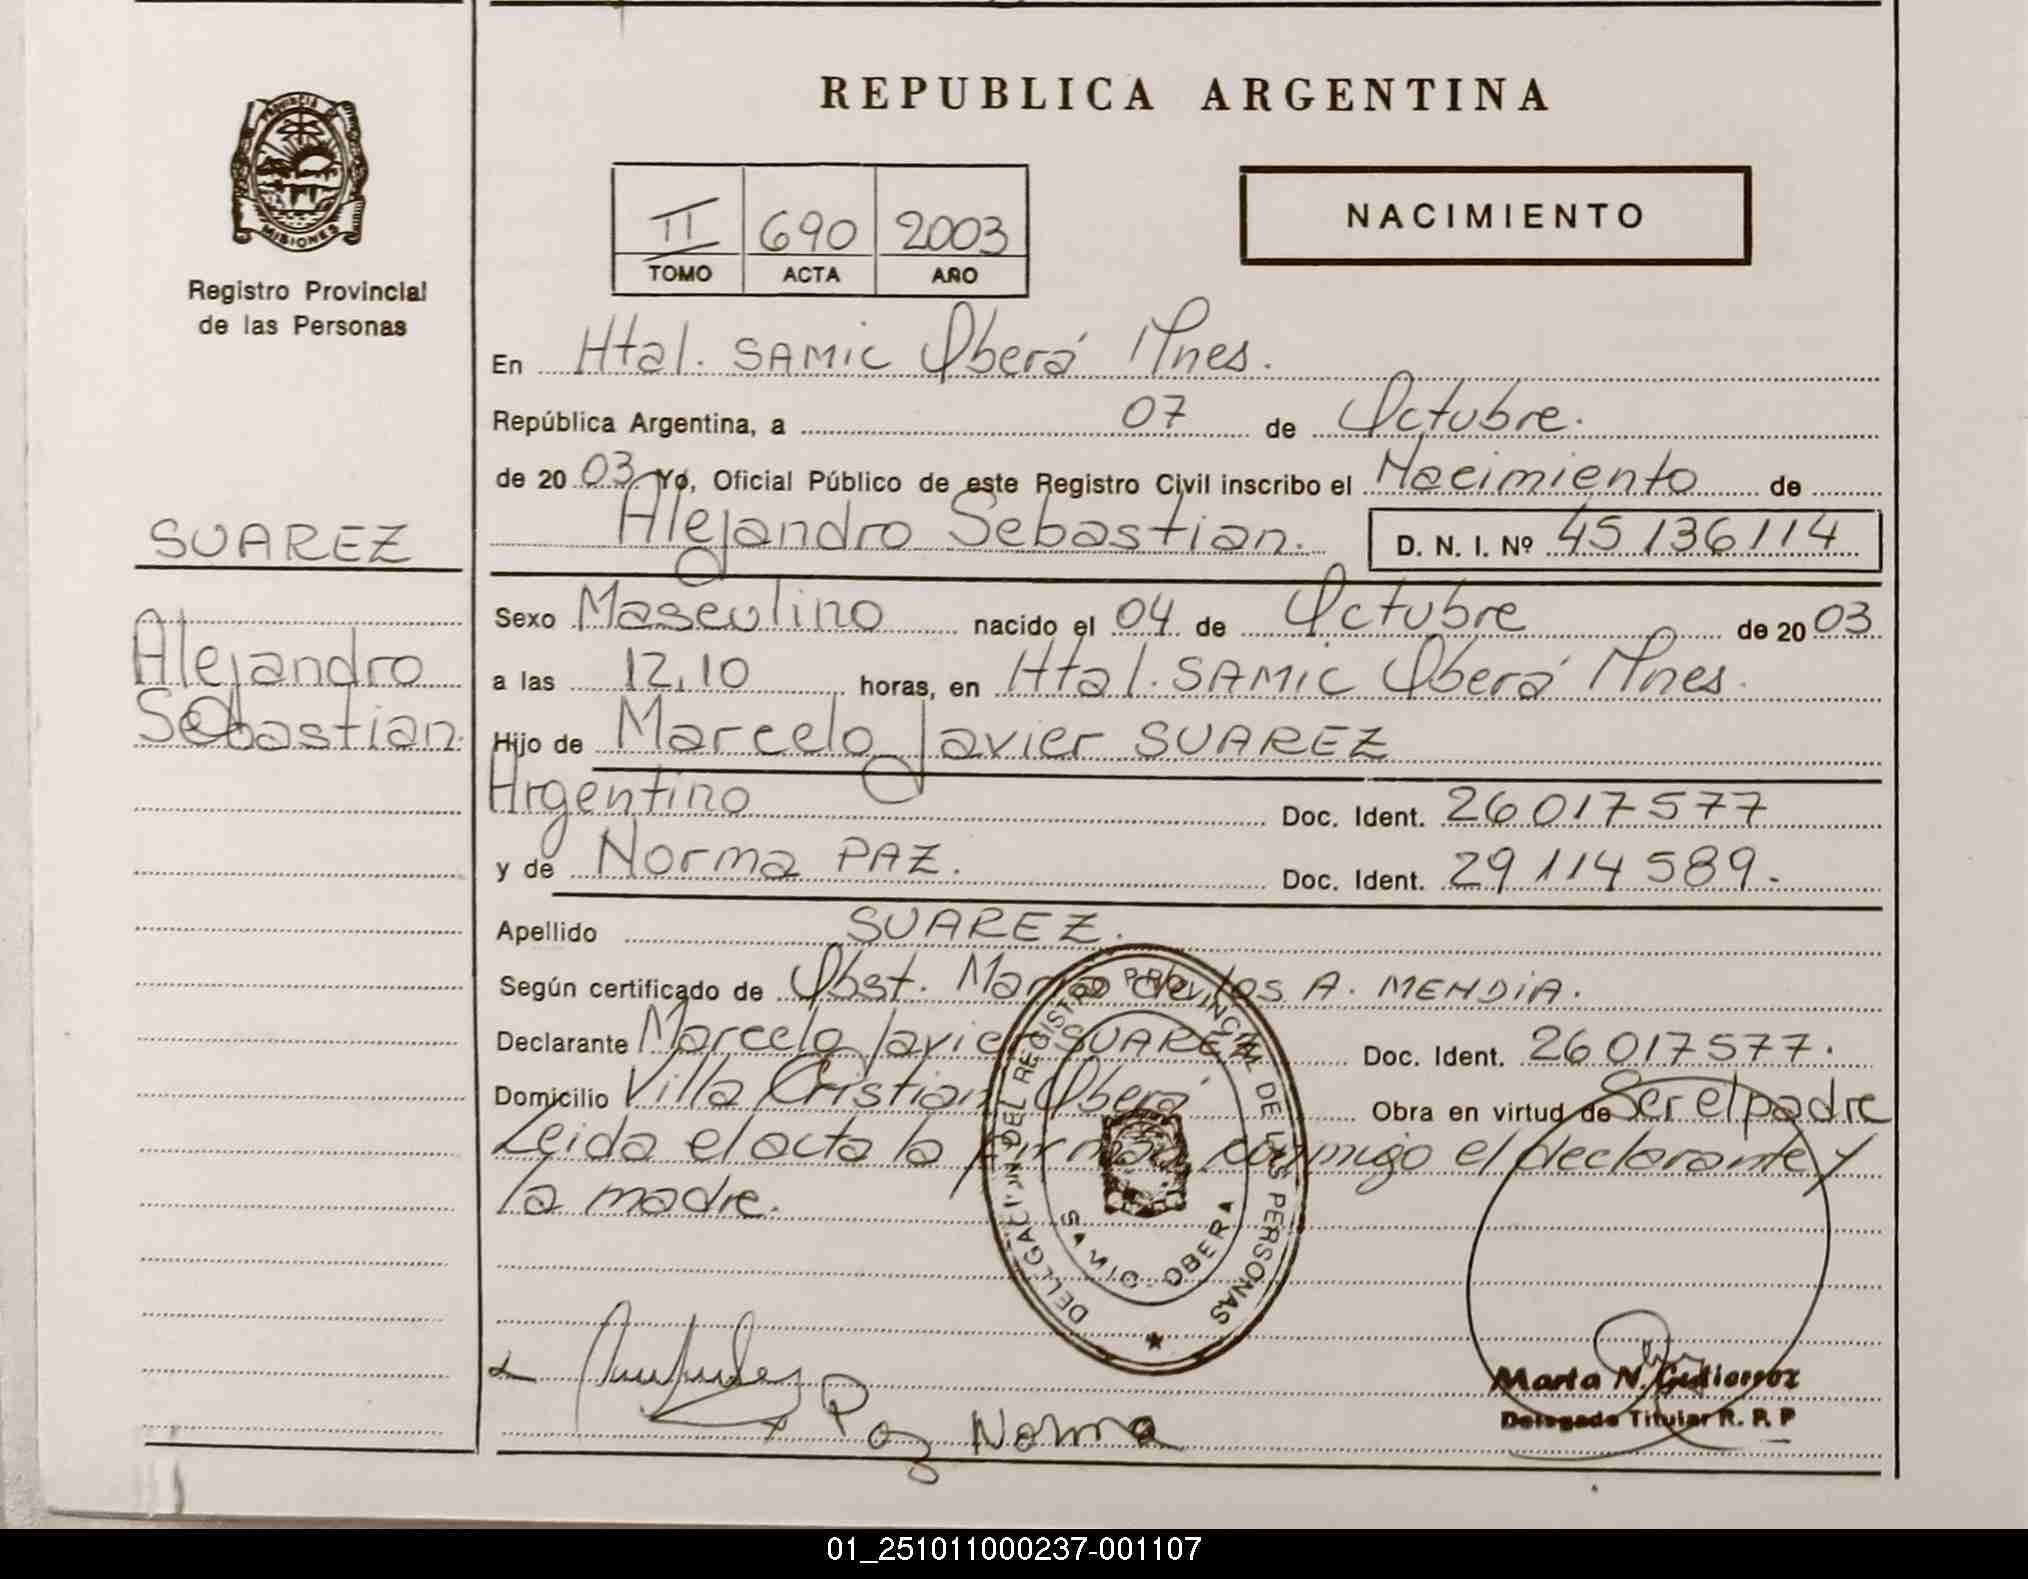 REPUBLICA ARGENTINA
PROVINCIA
MISIONES
Registro Provincial
de las Personas
II 690 2003
TOMO ACTA AÑO
NACIMIENTO
En Htal. SAMIC Oberá Mnes.
República Argentina, a 07 de Octubre.
de 20 03 Yo, Oficial Público de este Registro Civil inscribo el Nacimiento de
Alejandro Sebastian. D. N. I. Nº 45 136 114
SUAREZ
Alejandro
Sebastian.
Sexo Masculino nacido el 04 de Octubre de 20 03
a las 12,10 horas, en Htal. SAMIC Oberá Mnes.
Hijo de Marcelo Javier SUAREZ
Argentino Doc. Ident. 26 017 577
y de Norma PAZ. Doc. Ident. 29 114 589.
Apellido SUAREZ.
Según certificado de Obst. A. MENDIA.
Declarante Marcelo Javier SUAREZ Doc. Ident. 26 017 577.
Domicilio Villa Cristian Oberá Obra en virtud de Ser el padre
Leida el acta la firman conmigo el declarante y
la madre.
DELEGACION DEL REGISTRO PROVINCIAL DE LAS PERSONAS
SAMIC - OBERA
Paz Norma
Marta N. Gutierrez
Delegado Titular R. P. P
01_251011000237-001107